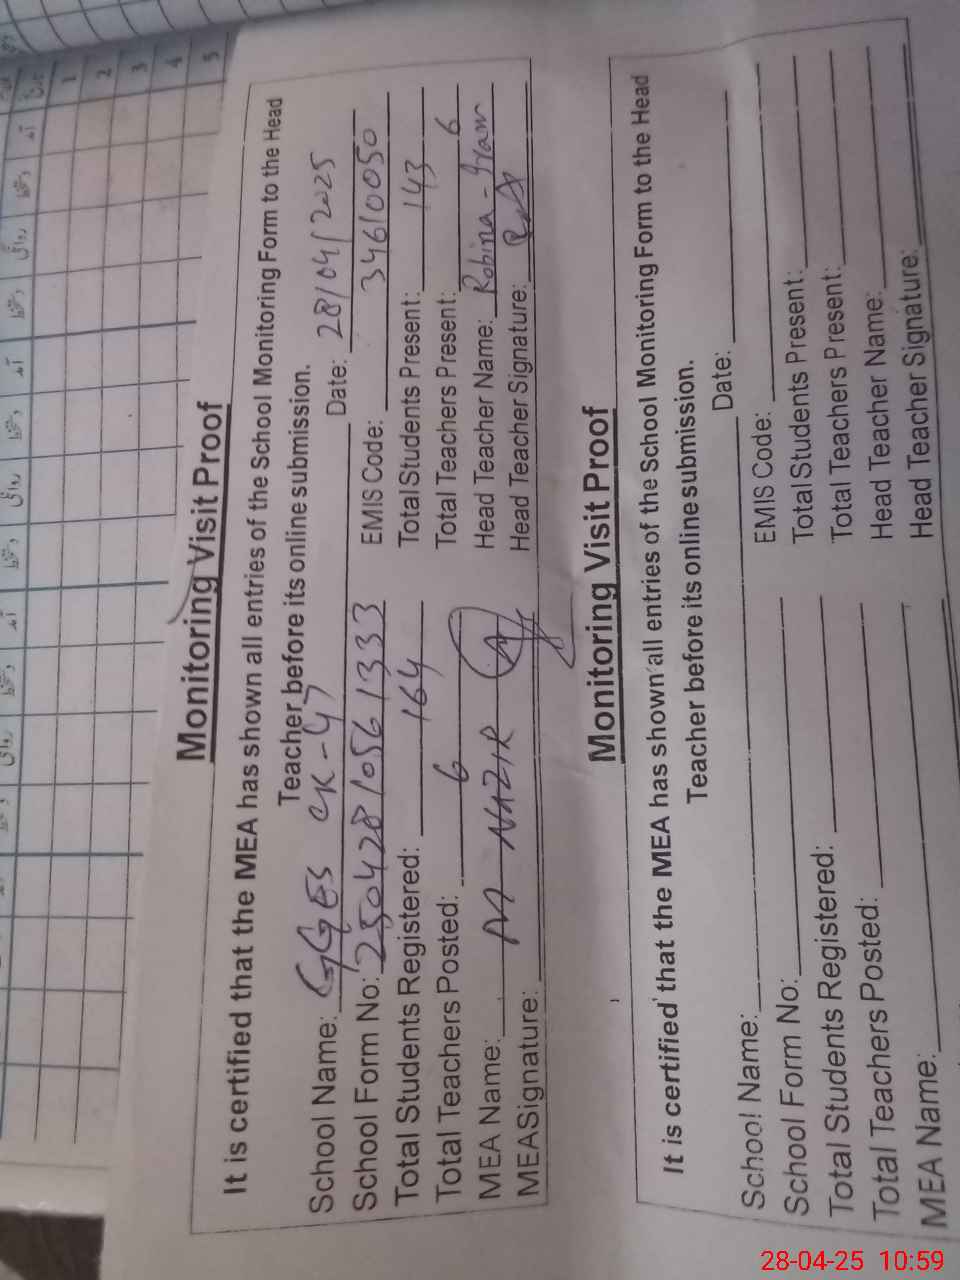 Monitoring Visit Proof
It is certified that the MEA has shown all entries of the School Monitoring Form to the Head
Teacher before its online submission.
School Name: GGES CK-47 Date: 28/04/2025
School Form No: 25042810561333 EMIS Code: 34610050
Total Students Registered: 164 Total Students Present: 143
Total Teachers Posted: 6 Total Teachers Present: 6
MEA Name: M NAZIR Head Teacher Name: Robina
MEA Signature: Head Teacher Signature:
Monitoring Visit Proof
It is certified that the MEA has shown all entries of the School Monitoring Form to the Head
Teacher before its online submission.
School Name: Date:
School Form No: EMIS Code:
Total Students Registered: Total Students Present:
Total Teachers Posted: Total Teachers Present:
MEA Name: Head Teacher Name:
Head Teacher Signature:
1
2
3
4
5
28-04-25 10:59